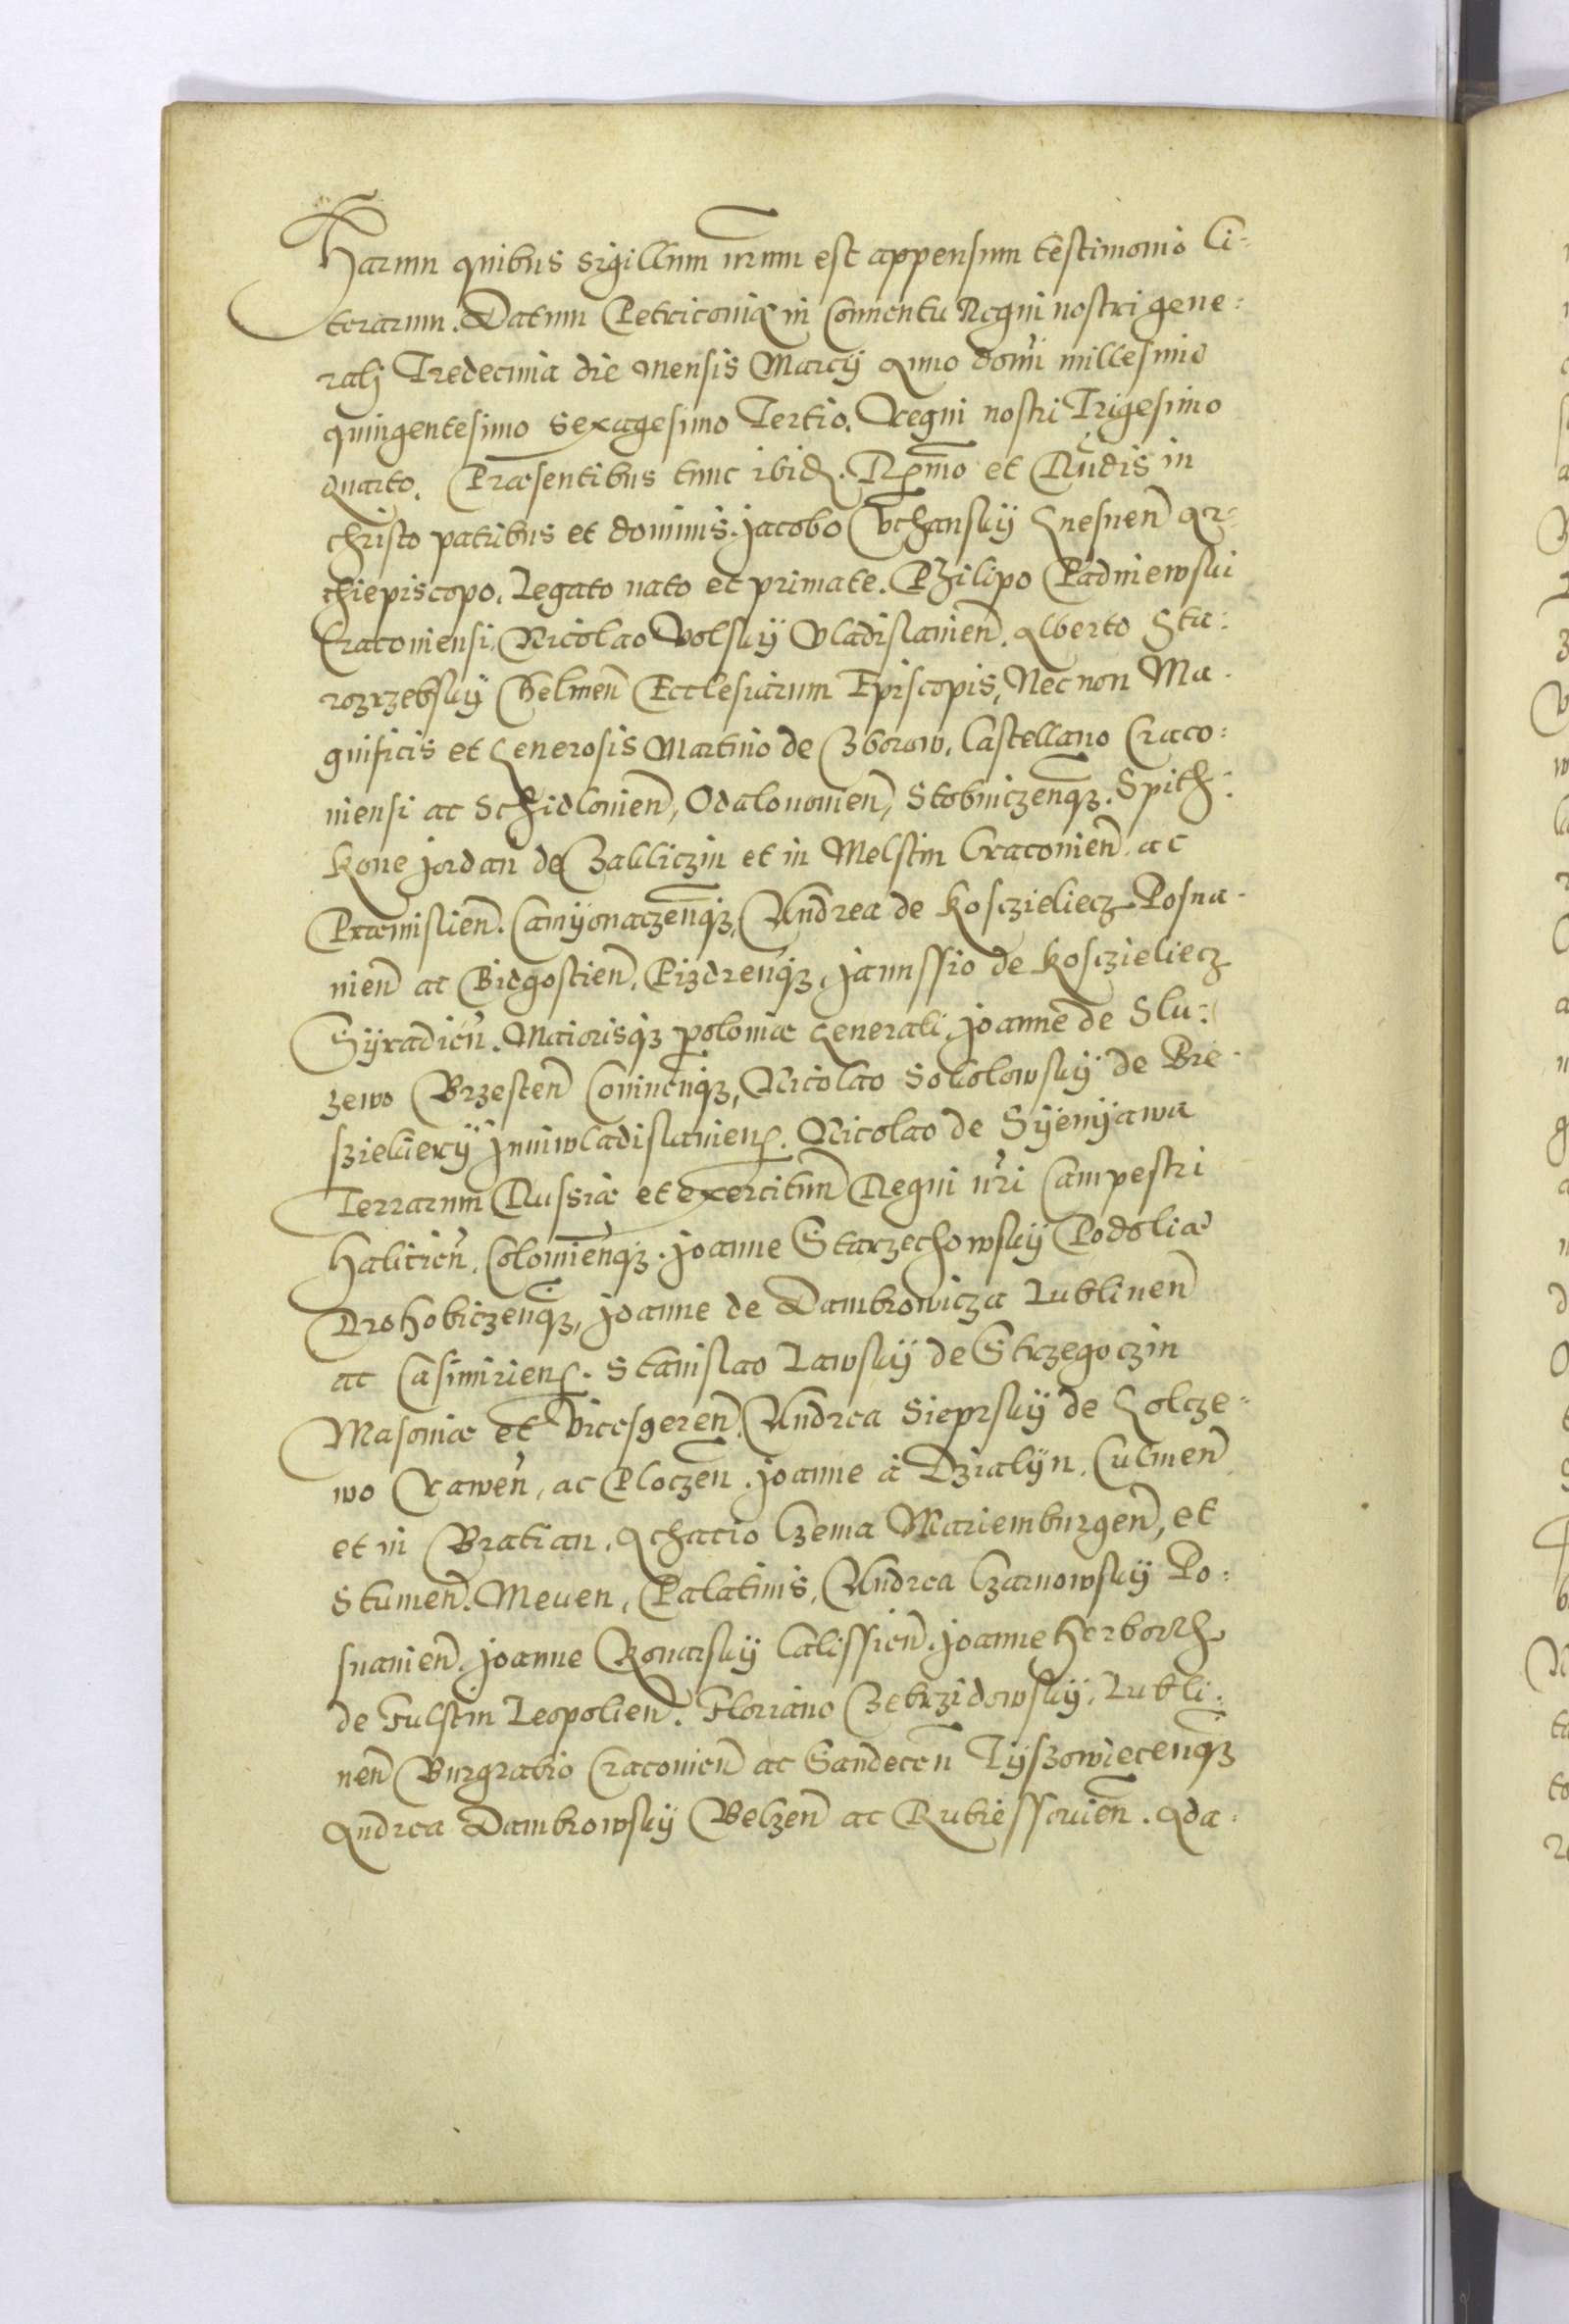 Harum quibus sigillum nrum est appensum testimonio li:
terarum. Datum Petricouiæ in Conuentu Regni nostri gene:
ralj Tredecima die mensis Marcÿ Anno domi millesimo
quingentesimo sexagesimo Tertio. Regni nostri Trigesimo
quarto. Præsentibus tunc ibid. Rmo et Rndis in
christo patribus et dominis. Jacobo Vchanskÿ Gnesnen Ar:
chiepiscopo. Legato nato et primate. Philipo Padniewski
Cracouiensi, Nicolao Volskÿ Vladislauien. Alberto Sta:
rozrzebskÿ Chelmen Ecclesiarum Episcopis, Nec non Ma:
gnificis et Generosis Martino de Zborow, Castellano Craco:
uiensi ac Schidlouien, Odalonouien, Stobniczenqz. Spith:
kone Jordan de Zakliczin et in Melstin Cracouien ac
Præmislien. Camÿonaczenqz, Andrea de Kosczieliecz Posna:
nien ac Bidgostien, Pizdrenqz, Janussio de Kosczieliecz
Sÿradien. Maiorisqz poloniæ Generali, Joanne de Slu:
zewo Brzesten Coninenqz, Nicolao Sokolowskÿ de Bre:
szieliery Inniwladislauien. Nicolao de Sÿenÿawa
Terrarum Russiæ et exercitum Regni nri Campestri
Halicien. Colomienqz. Joanne Starzechowskÿ Podoliæ
Drohobiczenqz, Joanne de Dambrowicza Lublinen
ac Casimirien. Stanislao Lawskÿ de Strzegoczin
Masouiæ et Vicesgeren. Andrea Sieprskÿ de Golcze:
wo Rawen, ac Ploczen. Joanne à Dzialÿn. Culmen
et in Bratian. Achacio Czema Mariemburgen, et
Stumen. Meuen, Palatinis, Andrea Czarnowskÿ Po:
snanien. Joanne Konarskÿ Calissien. Joanne Herborth
de Fulstin Leopolien. Floriano Zebrzidowskÿ. Lubli:
nen Burgrabio Cracouien ac Sandecen Tÿszowiecenqz
Andrea Dambrowskÿ Belzen ac Rubiessouien. Ada: